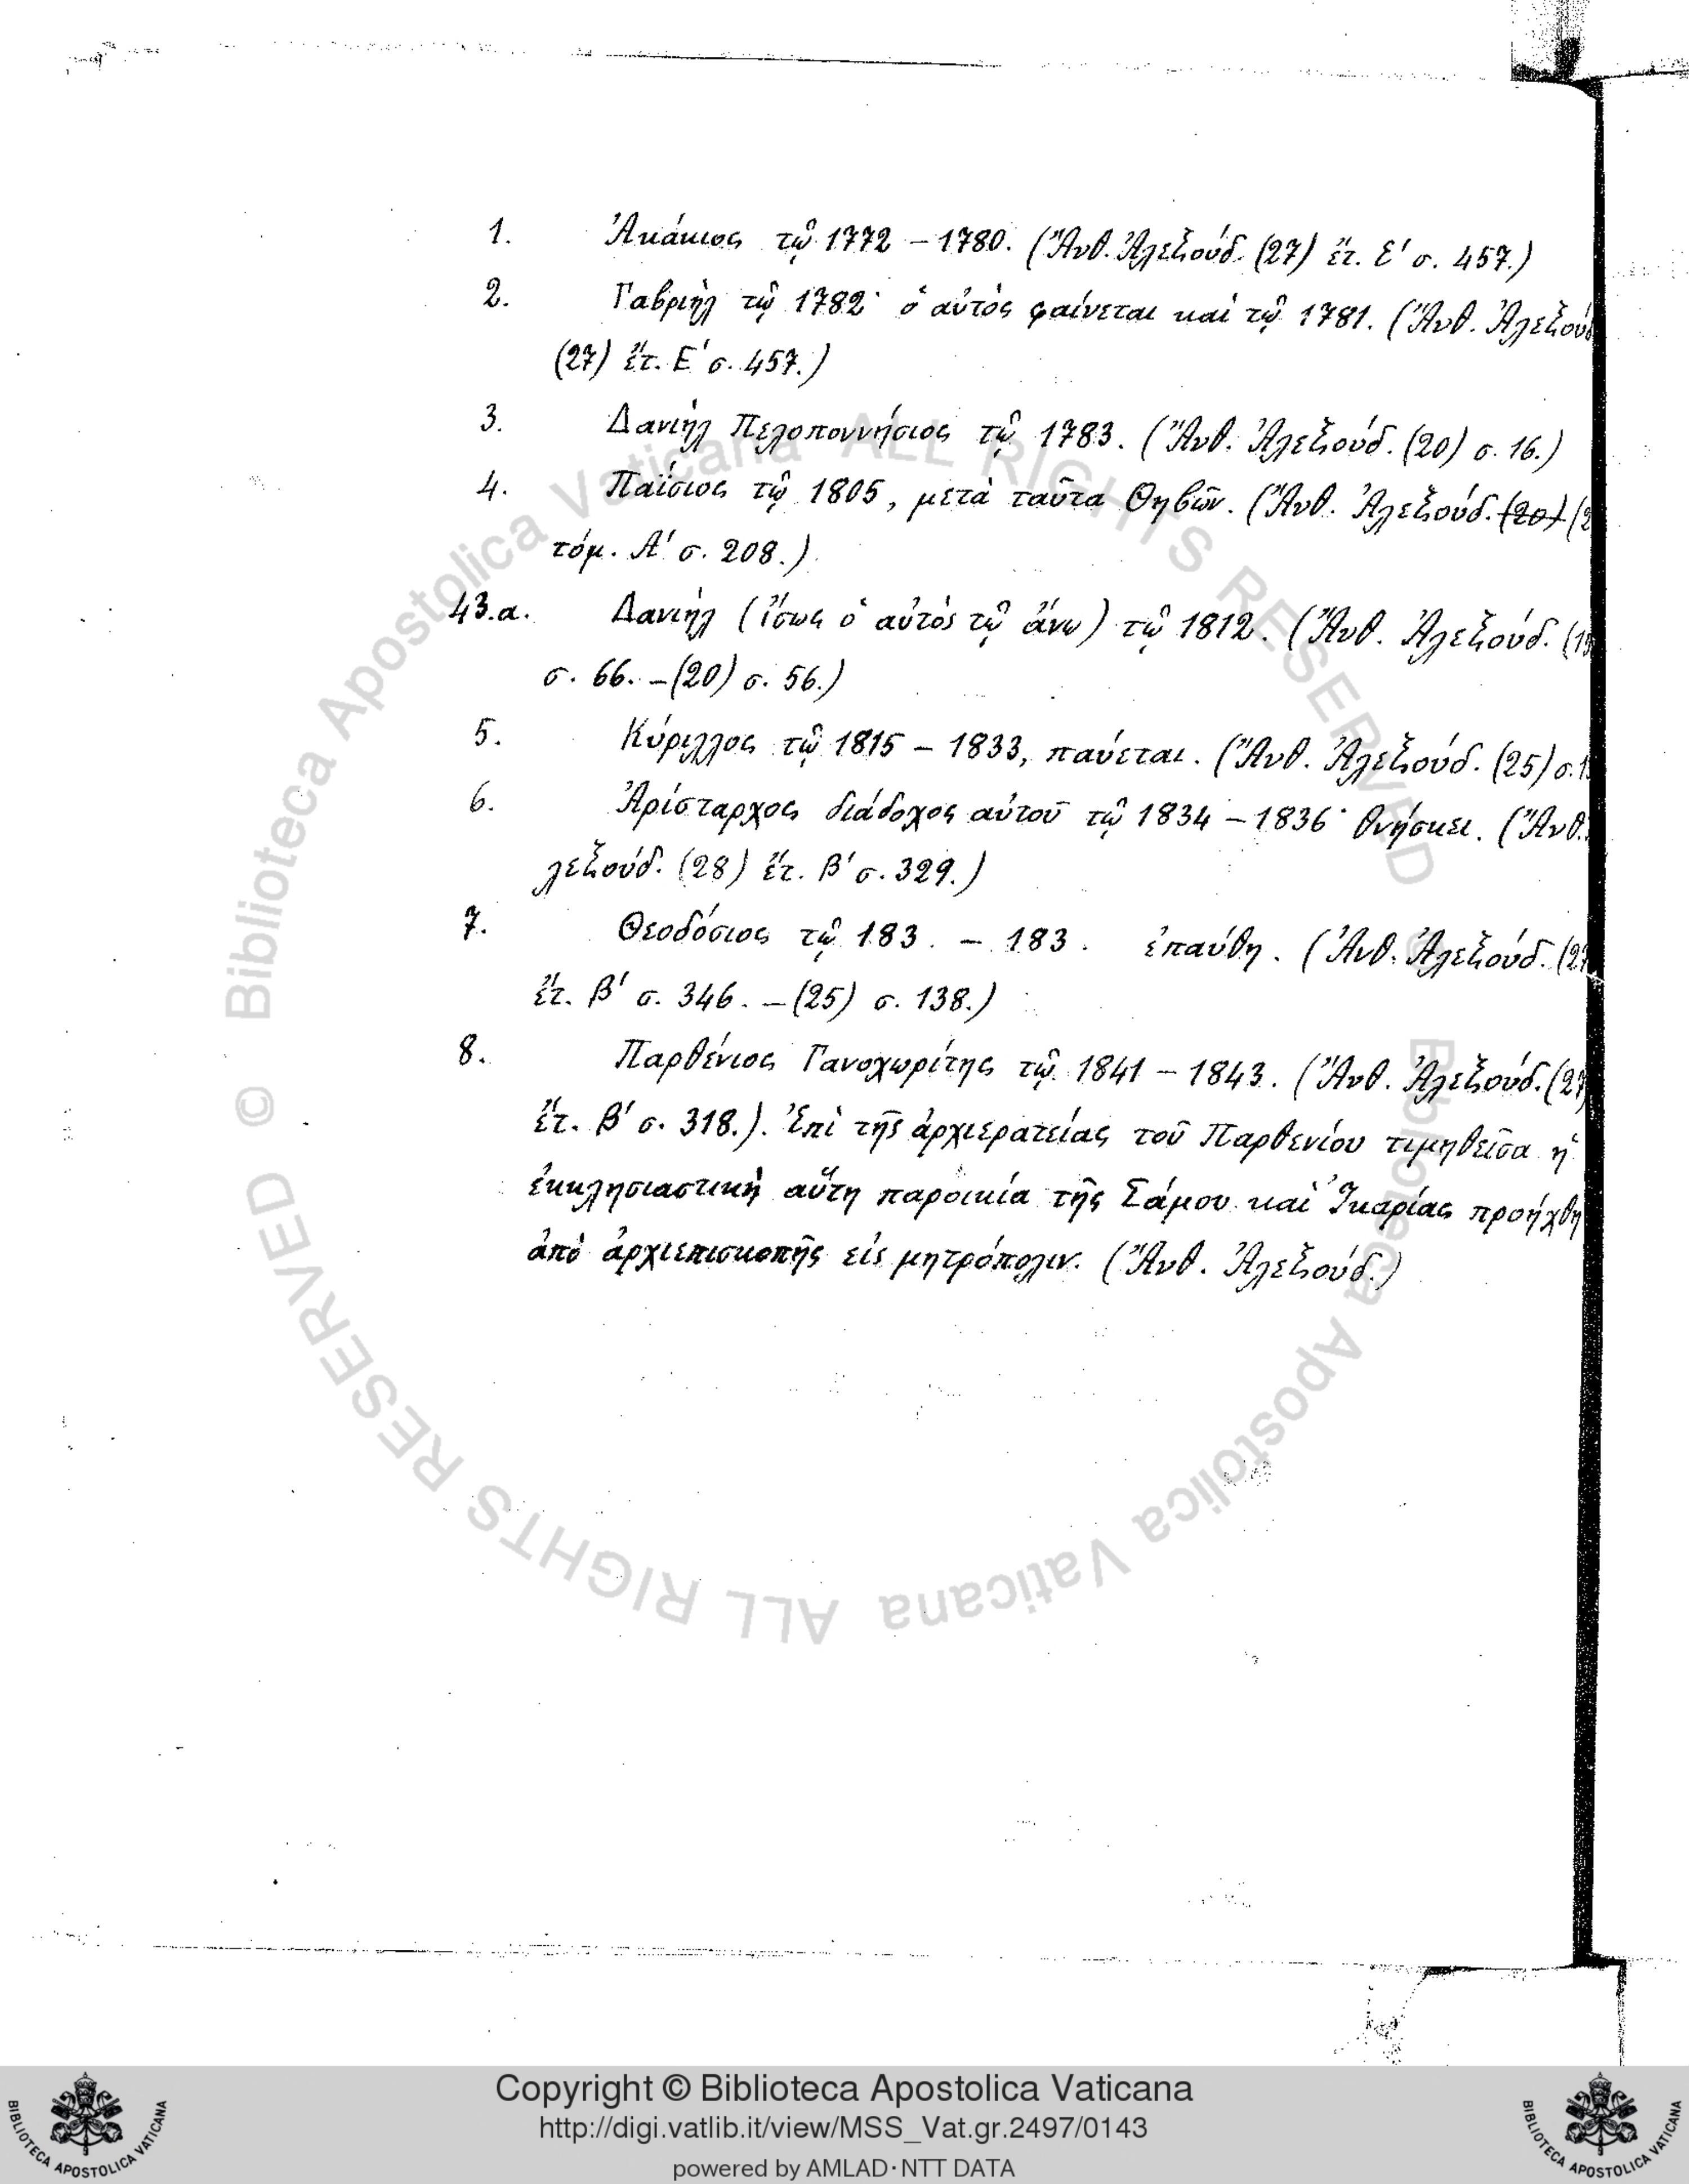 1. Ἀκάκιος τῷ 1772 – 1780. (Ἄνθ. Ἀλεξούδ. (27) ἔτ. Ε' σ. 457.)
2. Γαβριὴλ τῷ 1782· ὁ αὐτὸς φαίνεται καὶ τῷ 1781. (Ἄνθ. Ἀλεξούδ
(27) ἔτ. Ε' σ. 457.)
3. Δανιὴλ Πελοποννήσιος τῷ 1783. (Ἄνθ. Ἀλεξούδ. (20) σ. 16.)
4. Παΐσιος τῷ 1805, μετὰ ταῦτα Θηβῶν. (Ἄνθ. Ἀλεξούδ. (20) (2
τόμ. Α' σ. 208.)
43.α. Δανιὴλ (ἴσως ὁ αὐτὸς τῷ ἄνω) τῷ 1812. (Ἄνθ. Ἀλεξούδ. (1
σ. 66. – (20) σ. 56.)
5. Κύριλλος τῷ 1815 – 1833, παύεται. (Ἄνθ. Ἀλεξούδ. (25) σ. 1
6. Ἀρίσταρχος διάδοχος αὐτοῦ τῷ 1834 – 1836· θνήσκει. (Ἄνθ.
λεξούδ. (28) ἔτ. Β' σ. 329.)
7. Θεοδόσιος τῷ 183. – 183. ἐπαύθη. (Ἄνθ. Ἀλεξούδ. (2
ἔτ. Β' σ. 346. – (25) σ. 138.)
8. Παρθένιος Γανοχωρίτης τῷ 1841 – 1843. (Ἄνθ. Ἀλεξούδ. (2
ἔτ. Β' σ. 318.). Ἐπὶ τῆς ἀρχιερατείας τοῦ Παρθενίου τιμηθεῖσα ἡ
ἐκκλησιαστικὴ αὕτη παροικία τῆς Σάμου καὶ Ἰκαρίας προήχθη
ἀπὸ ἀρχιεπισκοπῆς εἰς μητρόπολιν. (Ἄνθ. Ἀλεξούδ.)
© Biblioteca Apostolica Vaticana ALL RIGHTS RESERVED
© Biblioteca Apostolica Vaticana ALL RIGHTS RESERVED
Copyright © Biblioteca Apostolica Vaticana
http://digi.vatlib.it/view/MSS_Vat.gr.2497/0143
powered by AMLAD·NTT DATA
BIBLIOTECA APOSTOLICA VATICANA
BIBLIOTECA APOSTOLICA VATICANA